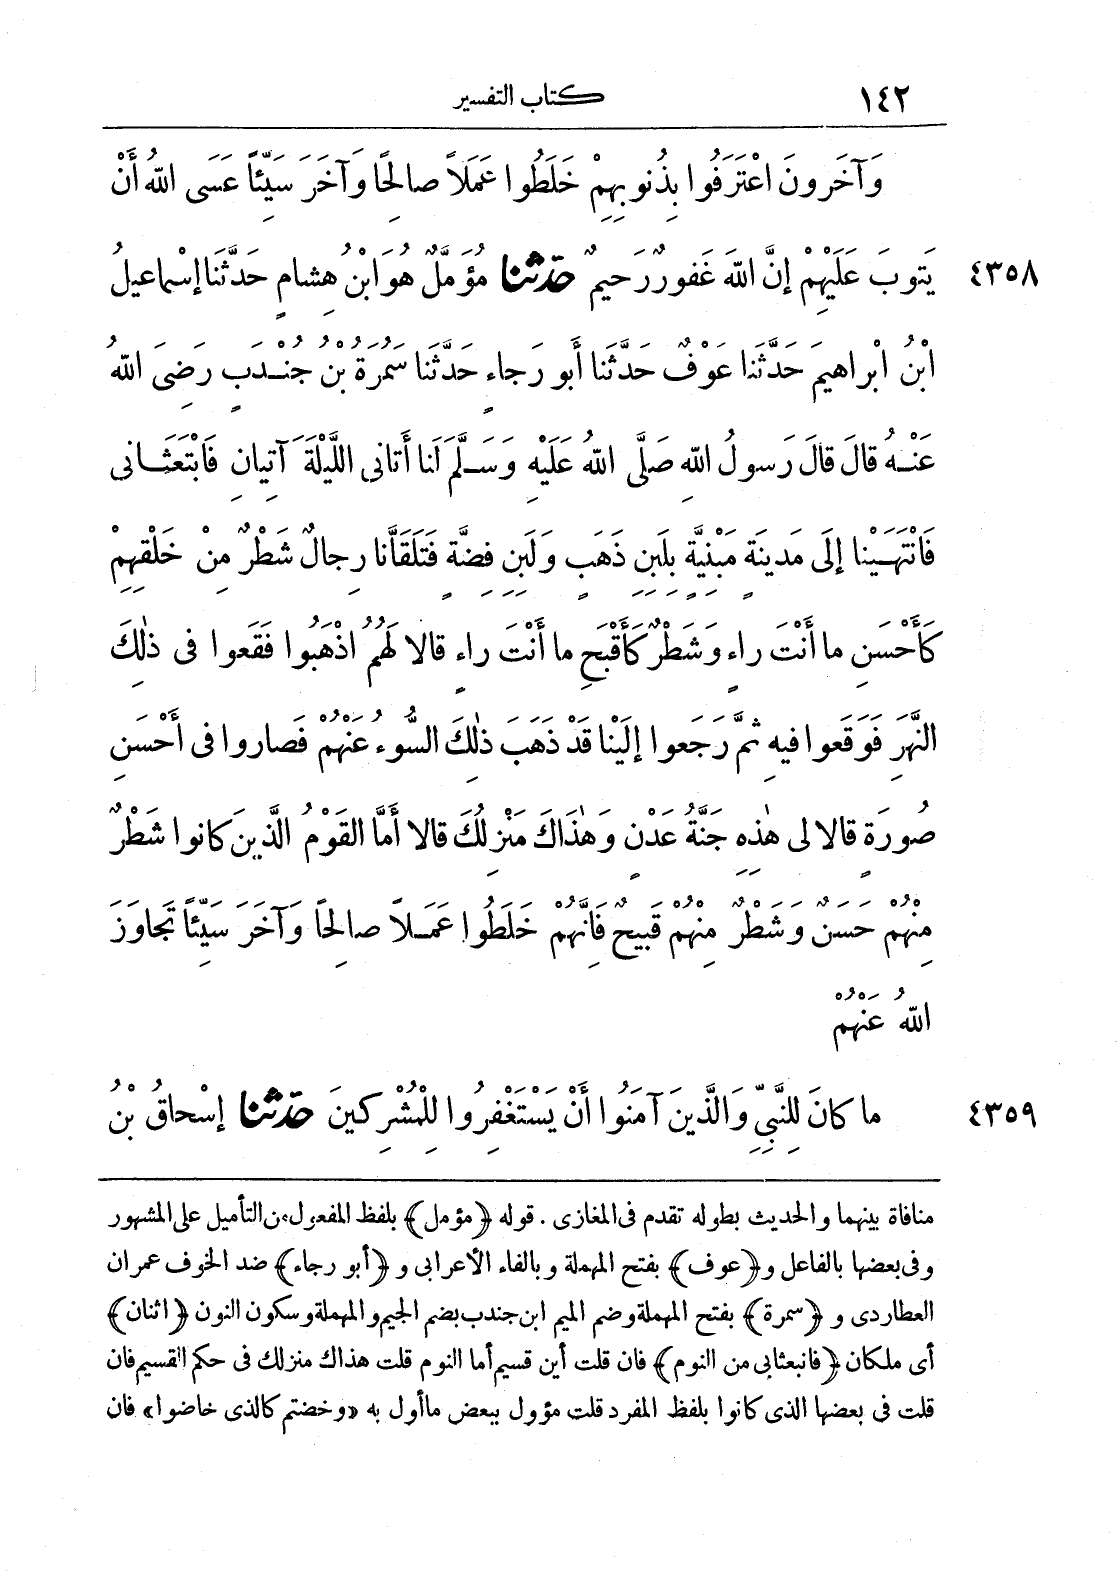 ١٤٢ كتاب التفسير
وَآخَرونَ اعْتَرَفُوا بِذُنوبِهِمْ خَلَطُوا عَمَلاً صالِحًا وَآخَرَ سَيِّئاً عَسَى اللهُ أَنْ
٤٣٥٨ يَتوبَ عَلَيْهِمْ إنَّ اللهَ غَفورٌ رَحيمٌ حدّثنا مُؤَمَّلٌ هُوَ ابْنُ هِشامٍ حَدَّثَنا إسْماعيلُ
ابْنُ ابْراهيمَ حَدَّثَنا عَوْفٌ حَدَّثَنا أَبو رَجاءٍ حَدَّثَنا سَمُرَةُ بْنُ جُنْدَبٍ رَضِىَ اللهُ
عَنْهُ قالَ قالَ رَسولُ اللهِ صَلَّى اللهُ عَلَيْهِ وَسَلَّمَ لَنا أَتانى اللَّيْلَةَ آتِيانِ فَابْتَعَثانى
فَانْتَهَيْنا إلَى مَدينَةٍ مَبْنِيَّةٍ بِلَبِنِ ذَهَبٍ وَلَبِنِ فِضَّةٍ فَتَلَقَّانا رِجالٌ شَطْرٌ مِنْ خَلْقِهِمْ
كَأَحْسَنِ ما أَنْتَ راءٍ وَشَطْرٌ كَأَقْبَحِ ما أَنْتَ راءٍ قالا لَهُمُ اذْهَبُوا فَقَعوا فى ذٰلِكَ
النَّهَرِ فَوَقَعوا فيهِ ثُمَّ رَجَعوا إلَيْنا قَدْ ذَهَبَ ذٰلِكَ السُّوءُ عَنْهُمْ فَصاروا فى أَحْسَنِ
صُورَةٍ قالا لى هٰذِهِ جَنَّةُ عَدْنٍ وَهٰذَاكَ مَنْزِلُكَ قالا أَمَّا القَوْمُ الَّذينَ كانوا شَطْرٌ
مِنْهُمْ حَسَنٌ وَشَطْرٌ مِنْهُمْ قَبيحٌ فَانَّهُمْ خَلَطُوا عَمَلاً صالِحًا وَآخَرَ سَيِّئاً تَجاوَزَ
اللهُ عَنْهُمْ
٤٣٥٩ ما كانَ لِلنَّبِيِّ وَالَّذينَ آمَنُوا أَنْ يَسْتَغْفِرُوا لِلْمُشْرِكينَ حدّثنا إسْحاقُ بْنُ
منافاة بينهما والحديث بطوله تقدم فى المغازى . قوله ﴿مؤمل﴾ بلفظ المفعول من التأميل على المشهور
وفى بعضها بالفاعل و﴿عوف﴾ بفتح المهملة وبالفاء الأعرابى و﴿أبو رجاء﴾ ضد الخوف عمران
العطاردى و﴿سمرة﴾ بفتح المهملة وضم الميم ابن جندب بضم الجيم والمهملة وسكون النون ﴿اثنان﴾
أى ملكان ﴿فانبعثابى من النوم﴾ فان قلت أين قسيم أما النوم قلت هذاك منزلك فى حكم القسيم فان
قلت فى بعضها الذى كانوا بلفظ المفرد قلت مؤول ببعض ما أول به «وخضتم كالذى خاضوا» فان